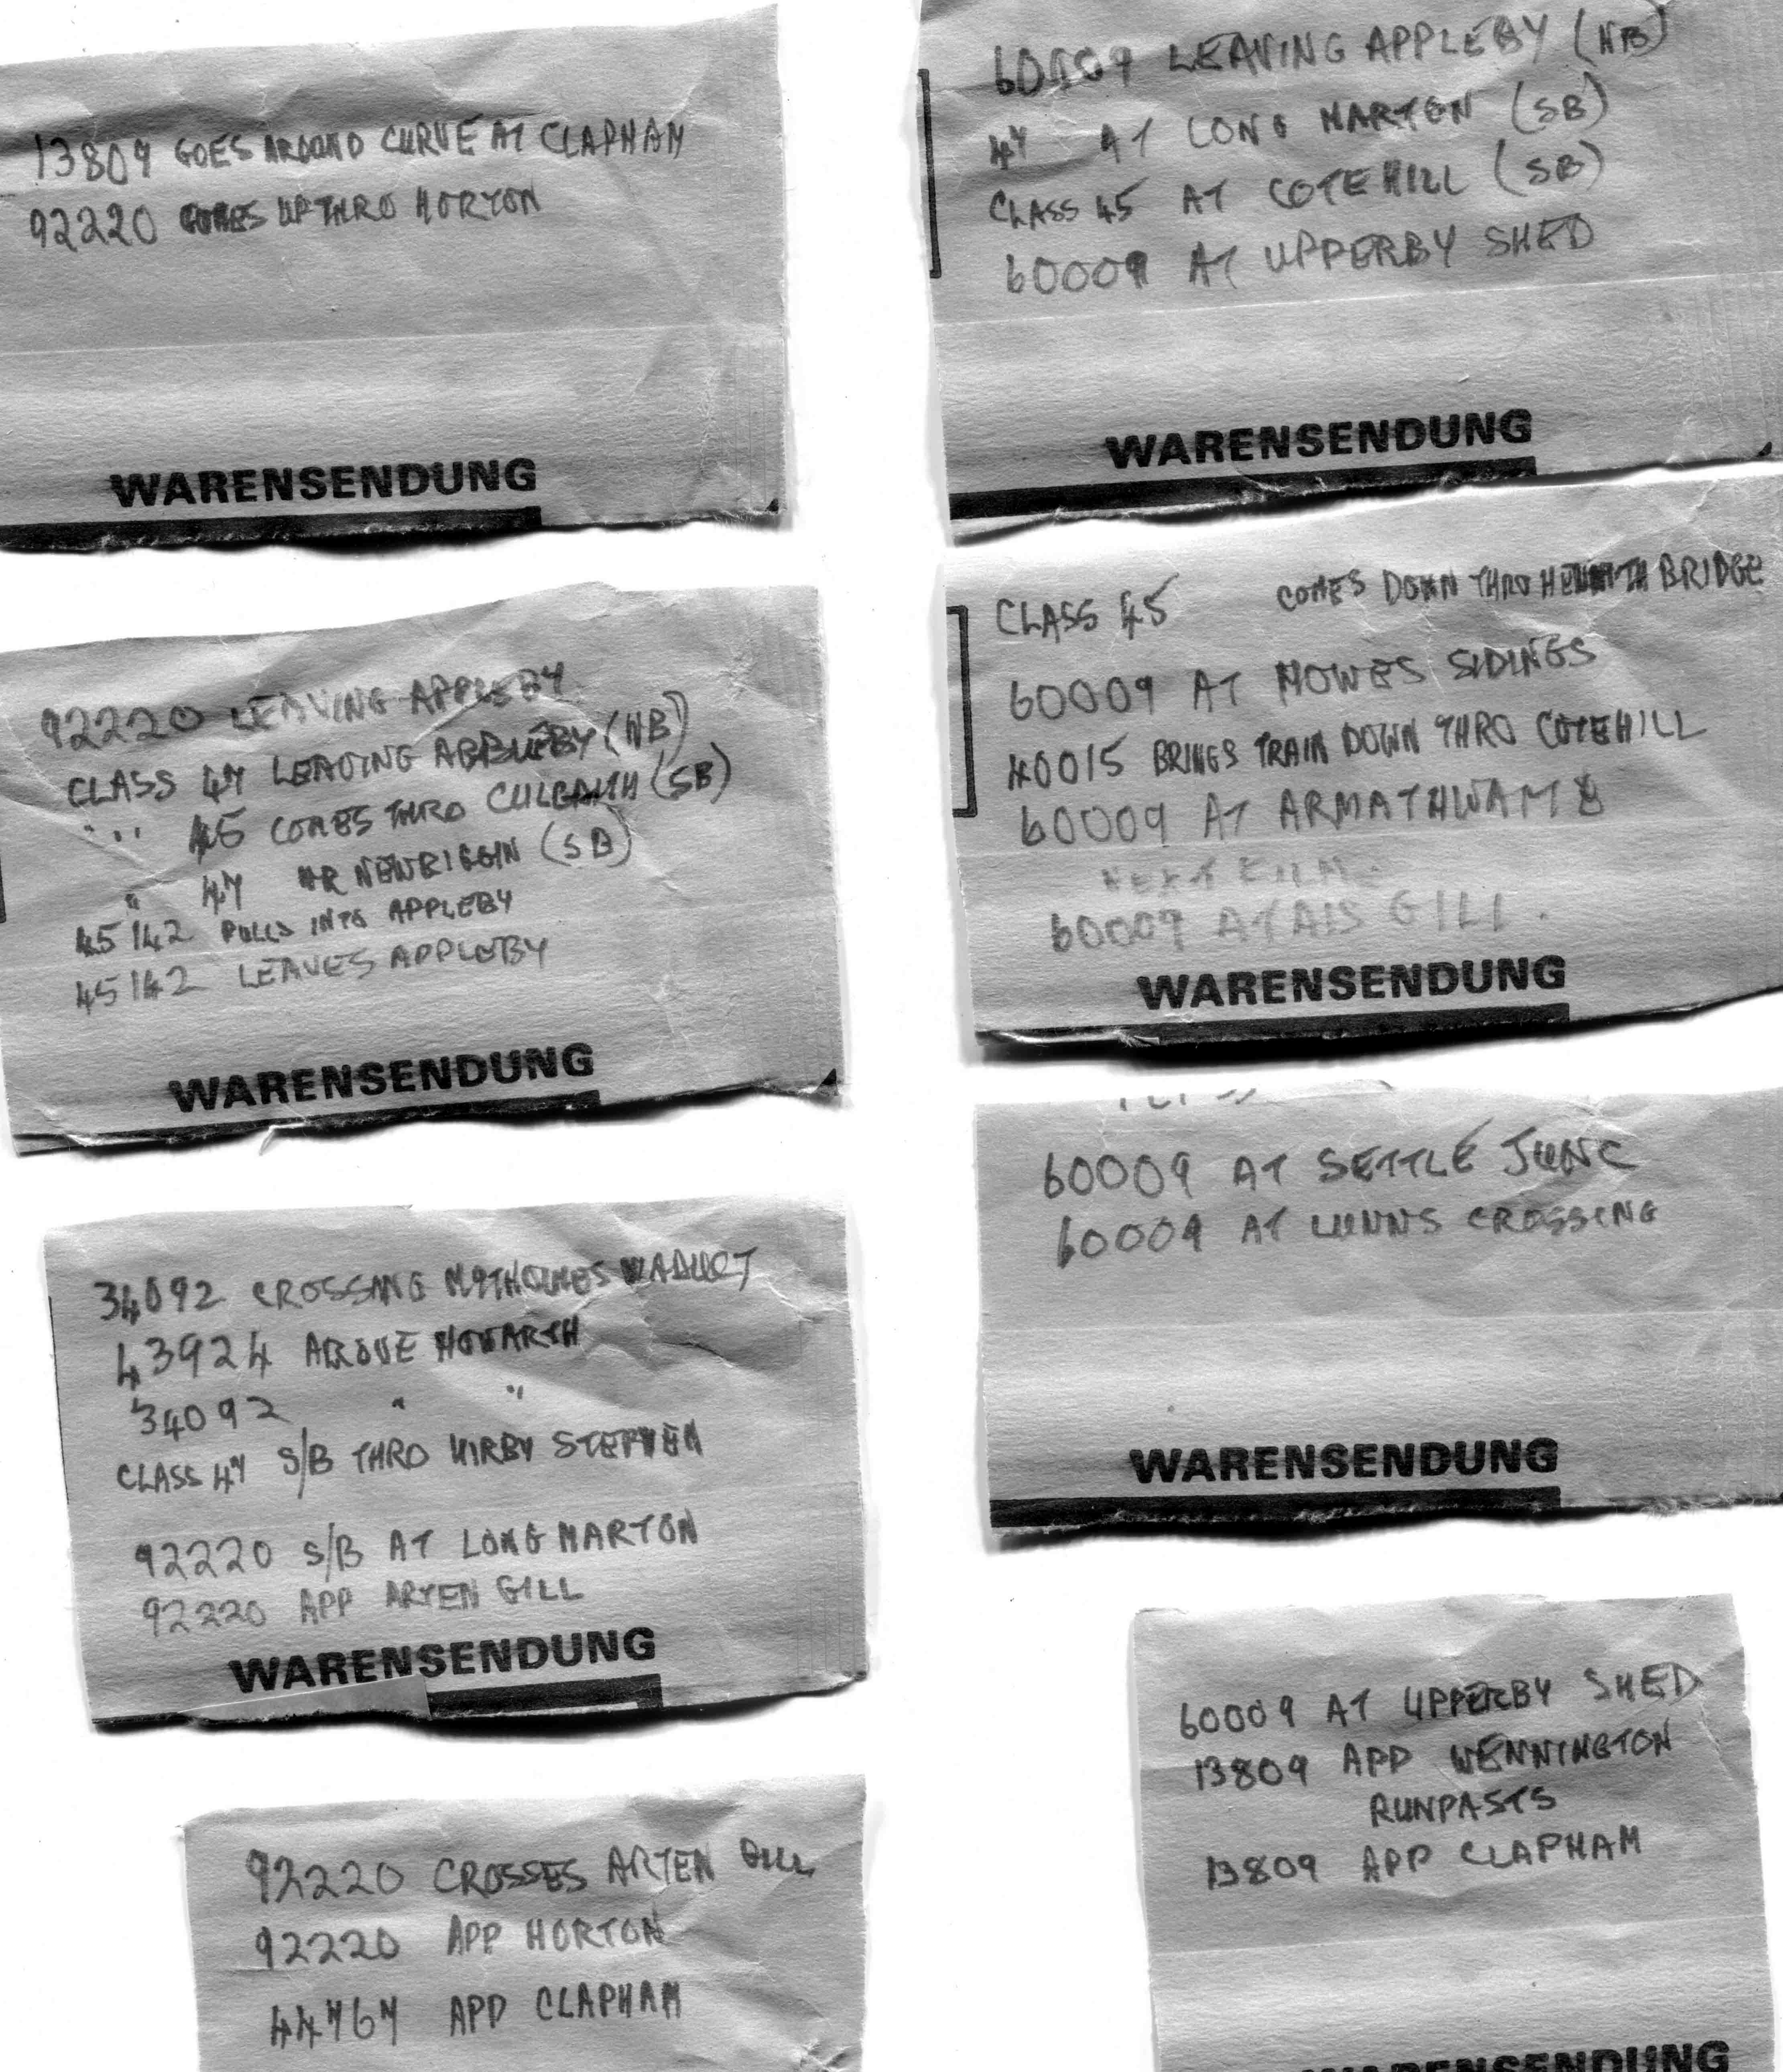 13809 GOES AROUND CURVE AT CLAPHAM
92220 COMES UP THRO HORTON
WARENSENDUNG
92220 LEAVING APPLEBY
CLASS 47 LEAVING APPLEBY (NB)
" " 45 COMES THRO CULGAITH (SB)
" 47 NR NEWBIGGIN (SB)
45142 PULLS INTO APPLEBY
45142 LEAVES APPLEBY
WARENSENDUNG
34092 CROSSING MYTHOLMES VIADUCT
43924 ABOVE HOWARTH
34092 " "
CLASS 47 S/B THRO KIRBY STEPHEN
92220 S/B AT LONG MARTON
92220 APP ARTEN GILL
WARENSENDUNG
92220 CROSSES ARTEN GILL
92220 APP HORTON
44767 APP CLAPHAM
60009 LEAVING APPLEBY (NB)
47 AT LONG MARTON (SB)
CLASS 45 AT COTEHILL (SB)
60009 AT UPPERBY SHED
WARENSENDUNG
CLASS 45 COMES DOWN THRO BRIDGE
60009 AT HOWES SIDINGS
40015 BRINGS TRAIN DOWN THRO COTEHILL
60009 AT
NEXT FILM
60009 AT AIS GILL
WARENSENDUNG
60009 AT SETTLE JUNC
60009 AT LUNNS CROSSING
WARENSENDUNG
60009 AT UPPERBY SHED
13809 APP WENNINGTON
RUNPASTS
13809 APP CLAPHAM
WARENSENDUNG